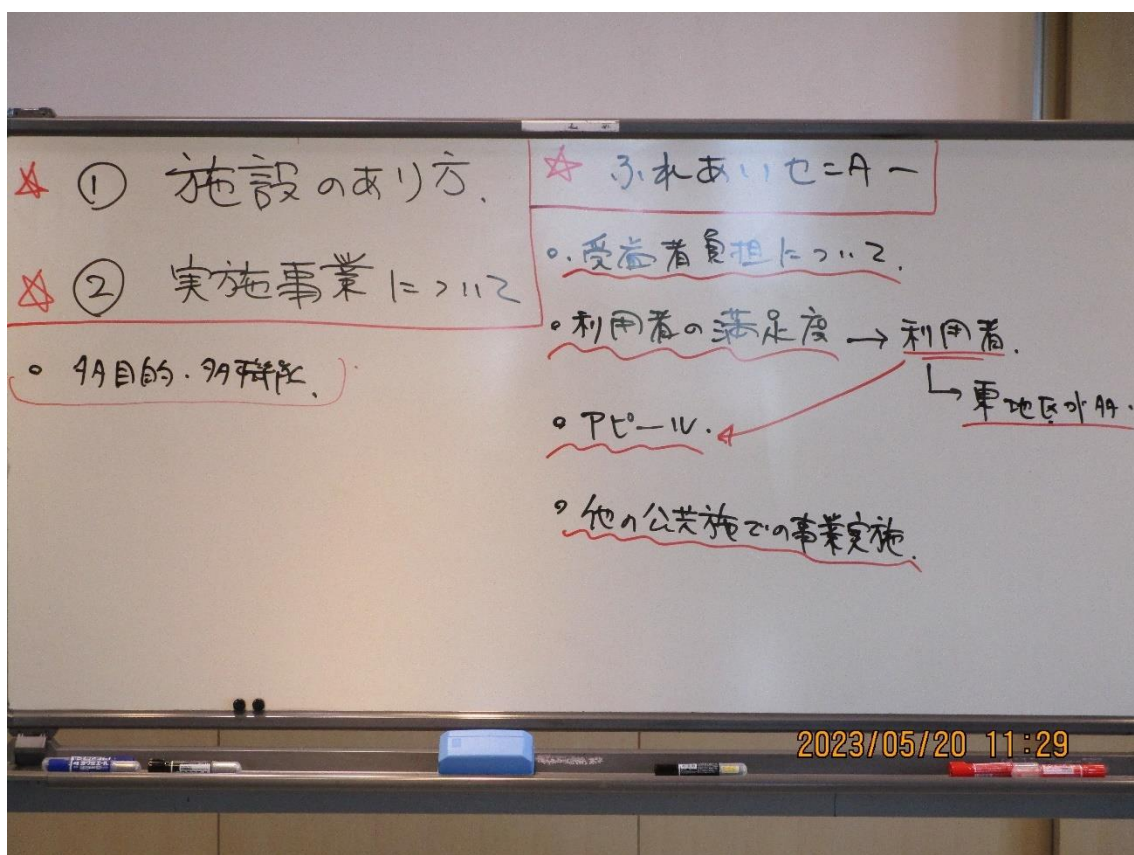 ☆ ① 施設のあり方.
☆ ② 実施事業について
○ 多目的・多機能.
☆ ふれあいセンター
○ 受益者負担について.
○ 利用者の満足度 → 利用者.
↳ 東地区が多.
○ アピール.
○ 他の公共施での事業実施.
2023/05/20 11:29